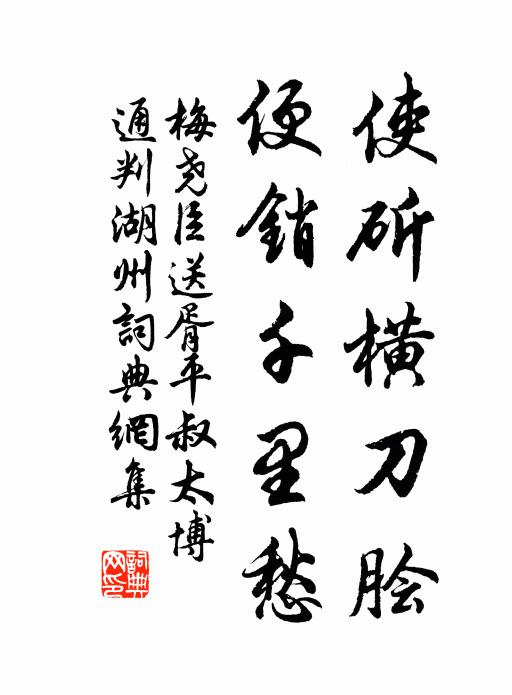 使斫横刀脍
便銷千里愁
梅尧臣送胥平叔太博
通判湖州詞典網集
詞典网印